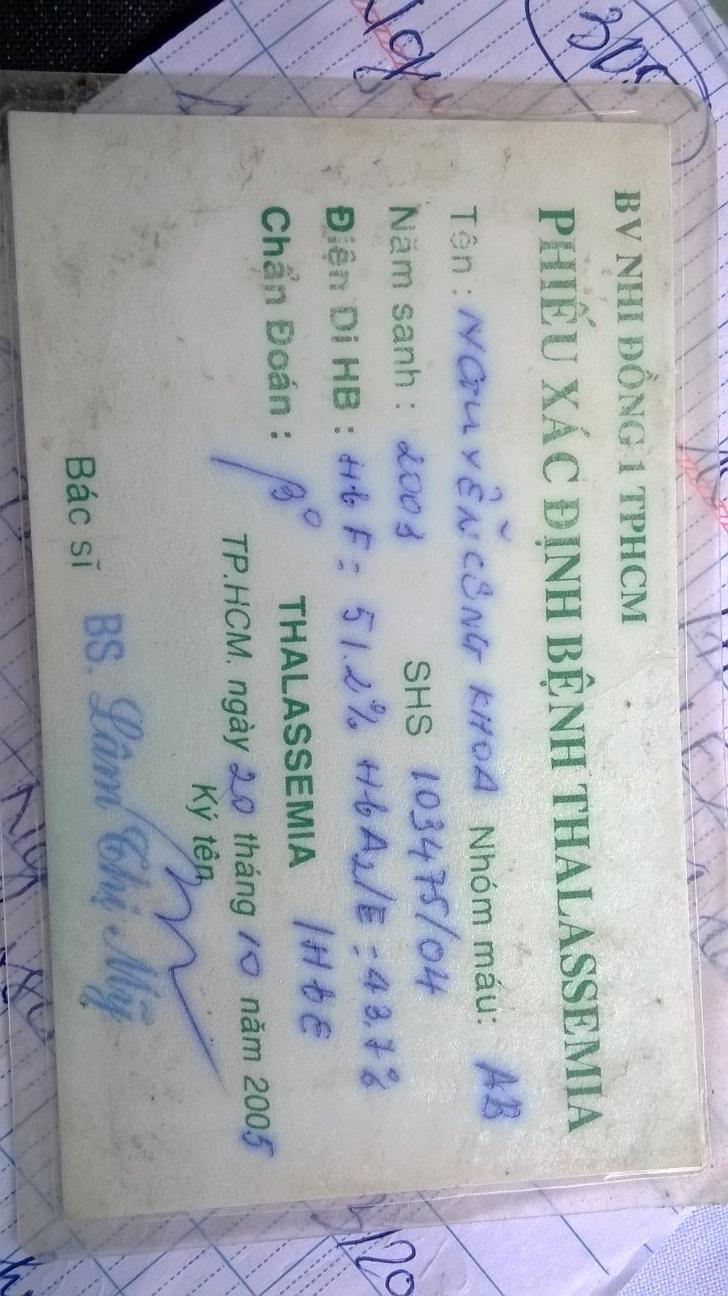 BV NHI ĐỒNG 1 TPHCM
PHIẾU XÁC ĐỊNH BỆNH THALASSEMIA
Tên : NGUYỄN CÔNG KHOA Nhóm máu: AB
Năm sanh : 2003 SHS 103475/04
Điện Di HB : Hb F : 51.2% Hb A2/E : 43.7%
Chẩn Đoán : β° THALASSEMIA / HbE
TP.HCM, ngày 20 tháng 10 năm 2005
Ký tên
Bác sĩ BS. Lâm Thị Mỹ
305